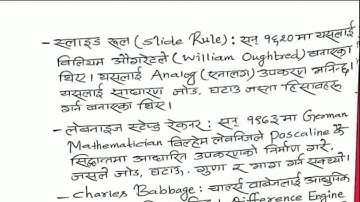 - स्लाइड रूल (Slide Rule) : सन् १६२० मा यसलाई
विलियम औगरेटले (William Oughtred) बनाएका
थिए। यसलाई Analog (एनालग) उपकरण भनिन्छ।
यसलाई साधारण जोड, घटाउ जस्ता हिसाबहरू
गर्न बनाएका थिए।
- लेबनाइज स्टेप्ड रेकनर : सन् १९८३ मा German
Mathematician विल्हेम लेबनिजले Pascaline कै
सिद्धान्तमा आधारित उपकरणको निर्माण गरे,
जसले जोड, घटाउ, गुणा र भाग गर्न सक्थ्यो।
- Charles Babbage : चार्ल्स बाबेजलाई आधुनिक
Difference Engine